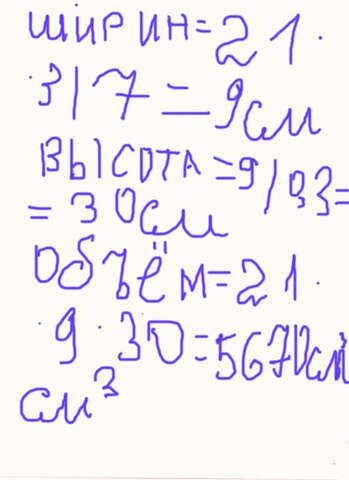 ширин=21.
·3/7=9см
высота=9/0,3=
=30см
объём=21·
·9·30=5670см
см³